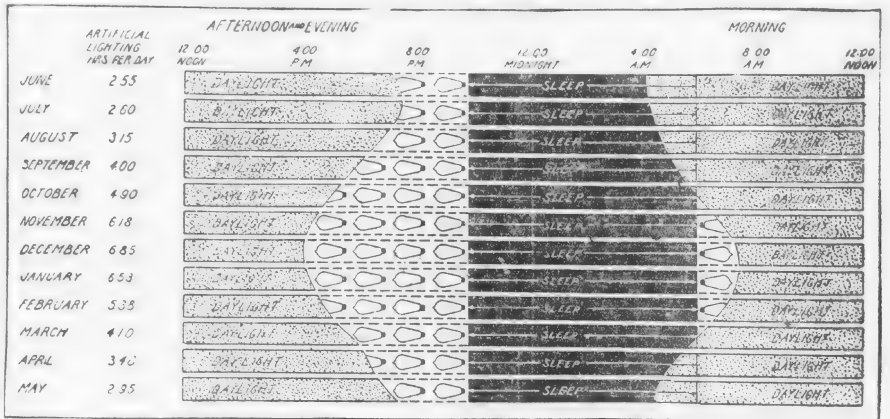 AFTERNOON AND EVENING MORNING
ARTIFICIAL LIGHTING HRS PER DAY
12 00 NOON 4 00 P M 8 00 P M 12 00 MIDNIGHT 4 00 A M 8 00 A M 12 00 NOON
JUNE 2 55 DAYLIGHT SLEEP DAYLIGHT
JULY 2 60 DAYLIGHT SLEEP DAYLIGHT
AUGUST 3 15 DAYLIGHT SLEEP DAYLIGHT
SEPTEMBER 4 00 DAYLIGHT SLEEP DAYLIGHT
OCTOBER 4 90 DAYLIGHT SLEEP DAYLIGHT
NOVEMBER 6 18 DAYLIGHT SLEEP DAYLIGHT
DECEMBER 6 85 DAYLIGHT SLEEP DAYLIGHT
JANUARY 6 53 DAYLIGHT SLEEP DAYLIGHT
FEBRUARY DAYLIGHT SLEEP DAYLIGHT
MARCH 4 10 DAYLIGHT SLEEP DAYLIGHT
APRIL DAYLIGHT SLEEP DAYLIGHT
MAY 2 95 DAYLIGHT SLEEP DAYLIGHT